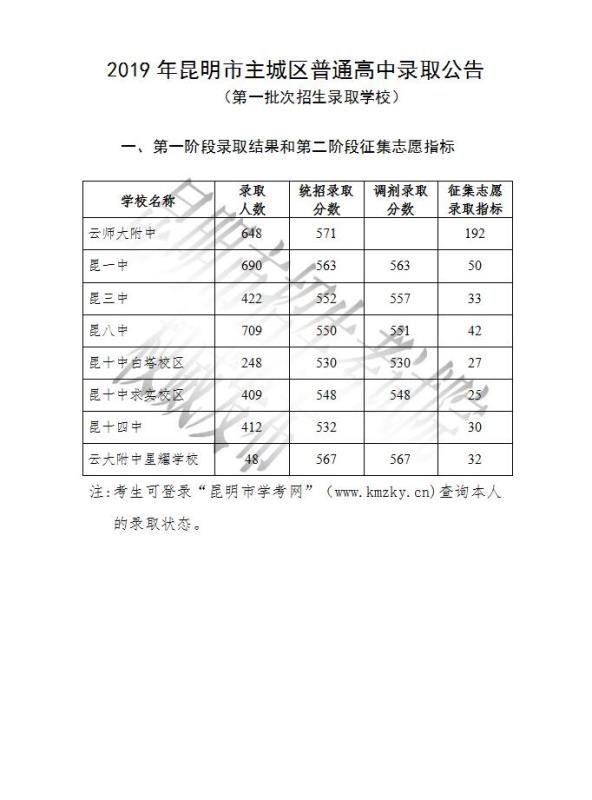 2019年昆明市主城区普通高中录取公告
（第一批次招生录取学校）
一、第一阶段录取结果和第二阶段征集志愿指标
学校名称 录取人数 统招录取分数 调剂录取分数 征集志愿录取指标
云师大附中 648 571 192
昆一中 690 563 563 50
昆三中 422 552 557 33
昆八中 709 550 551 42
昆十中白塔校区 248 530 530 27
昆十中求实校区 409 548 548 25
昆十四中 412 532 30
云大附中星耀学校 48 567 567 32
注:考生可登录“昆明市学考网”（www.kmzky.cn)查询本人
的录取状态。
昆明市招生考试院
权威发布